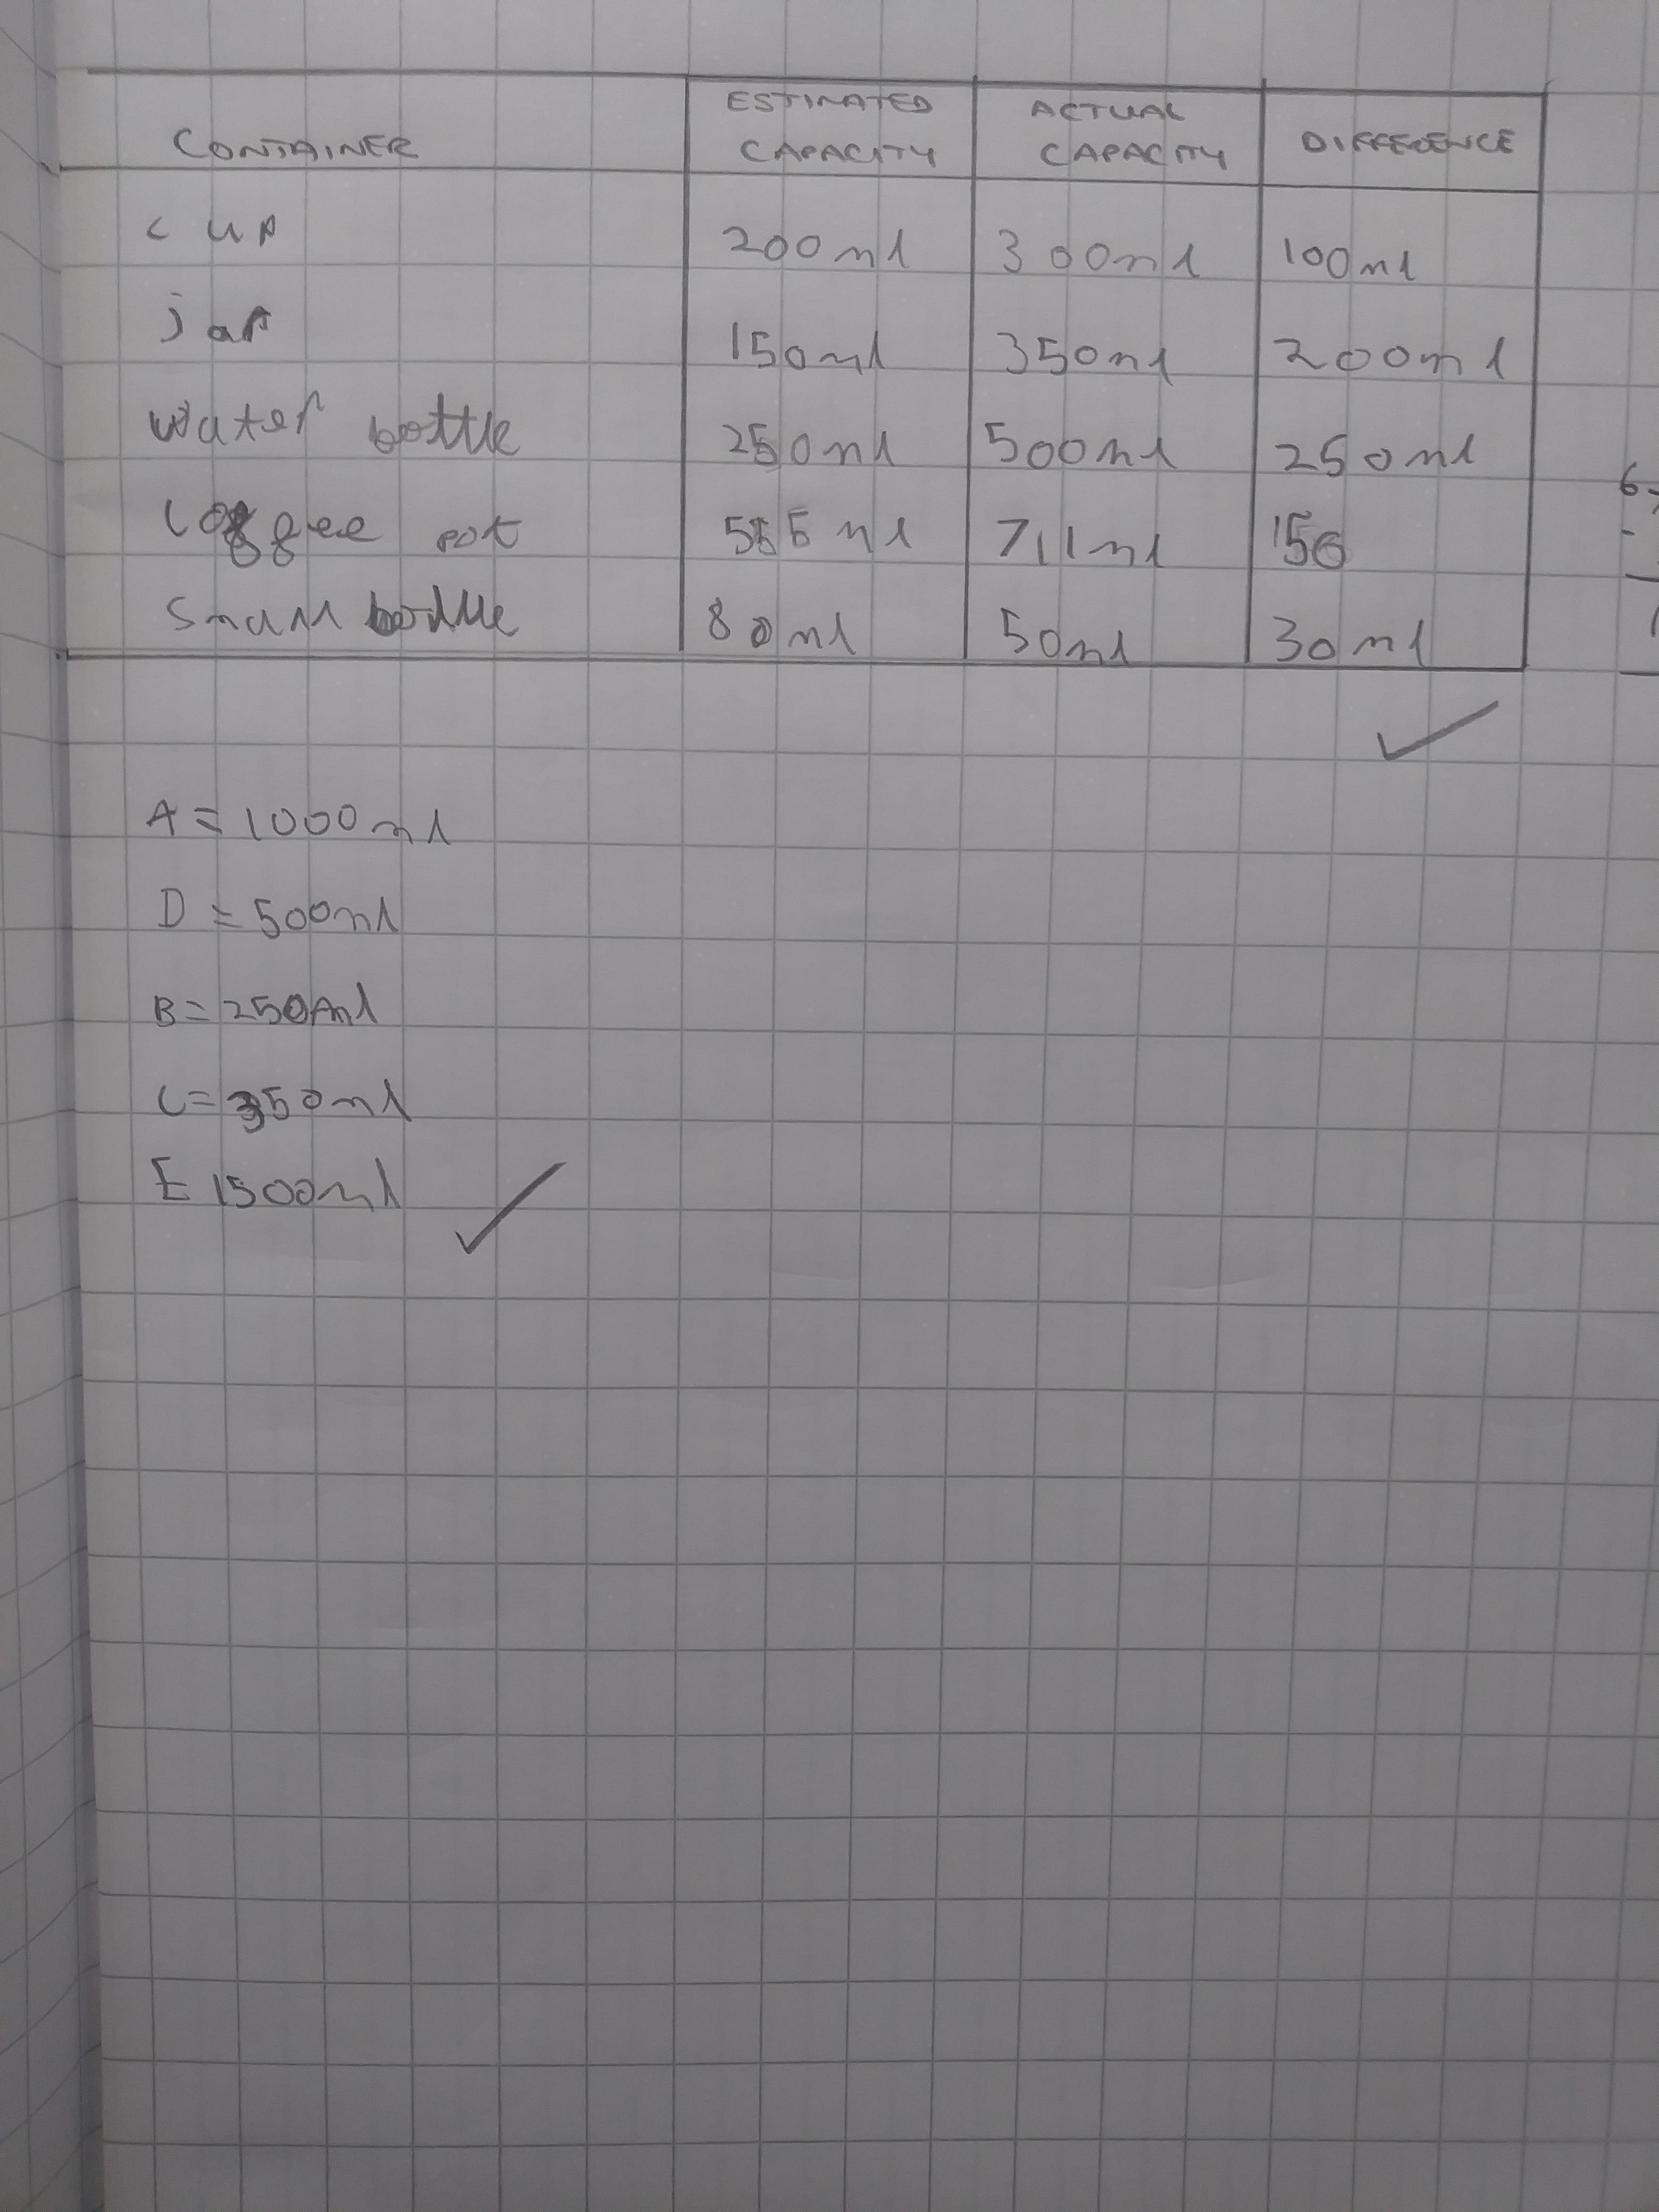 CONTAINER ESTIMATED CAPACITY ACTUAL CAPACITY DIFFERENCE
cup 200ml 300ml 100ml
jar 150ml 350ml 200ml
water bottle 250ml 500ml 250ml
coffee pot 555ml 711ml 156
Small bottle 80ml 50ml 30ml
A = 1000ml
D = 500ml
B = 250ml
C = 350ml
E 1500ml